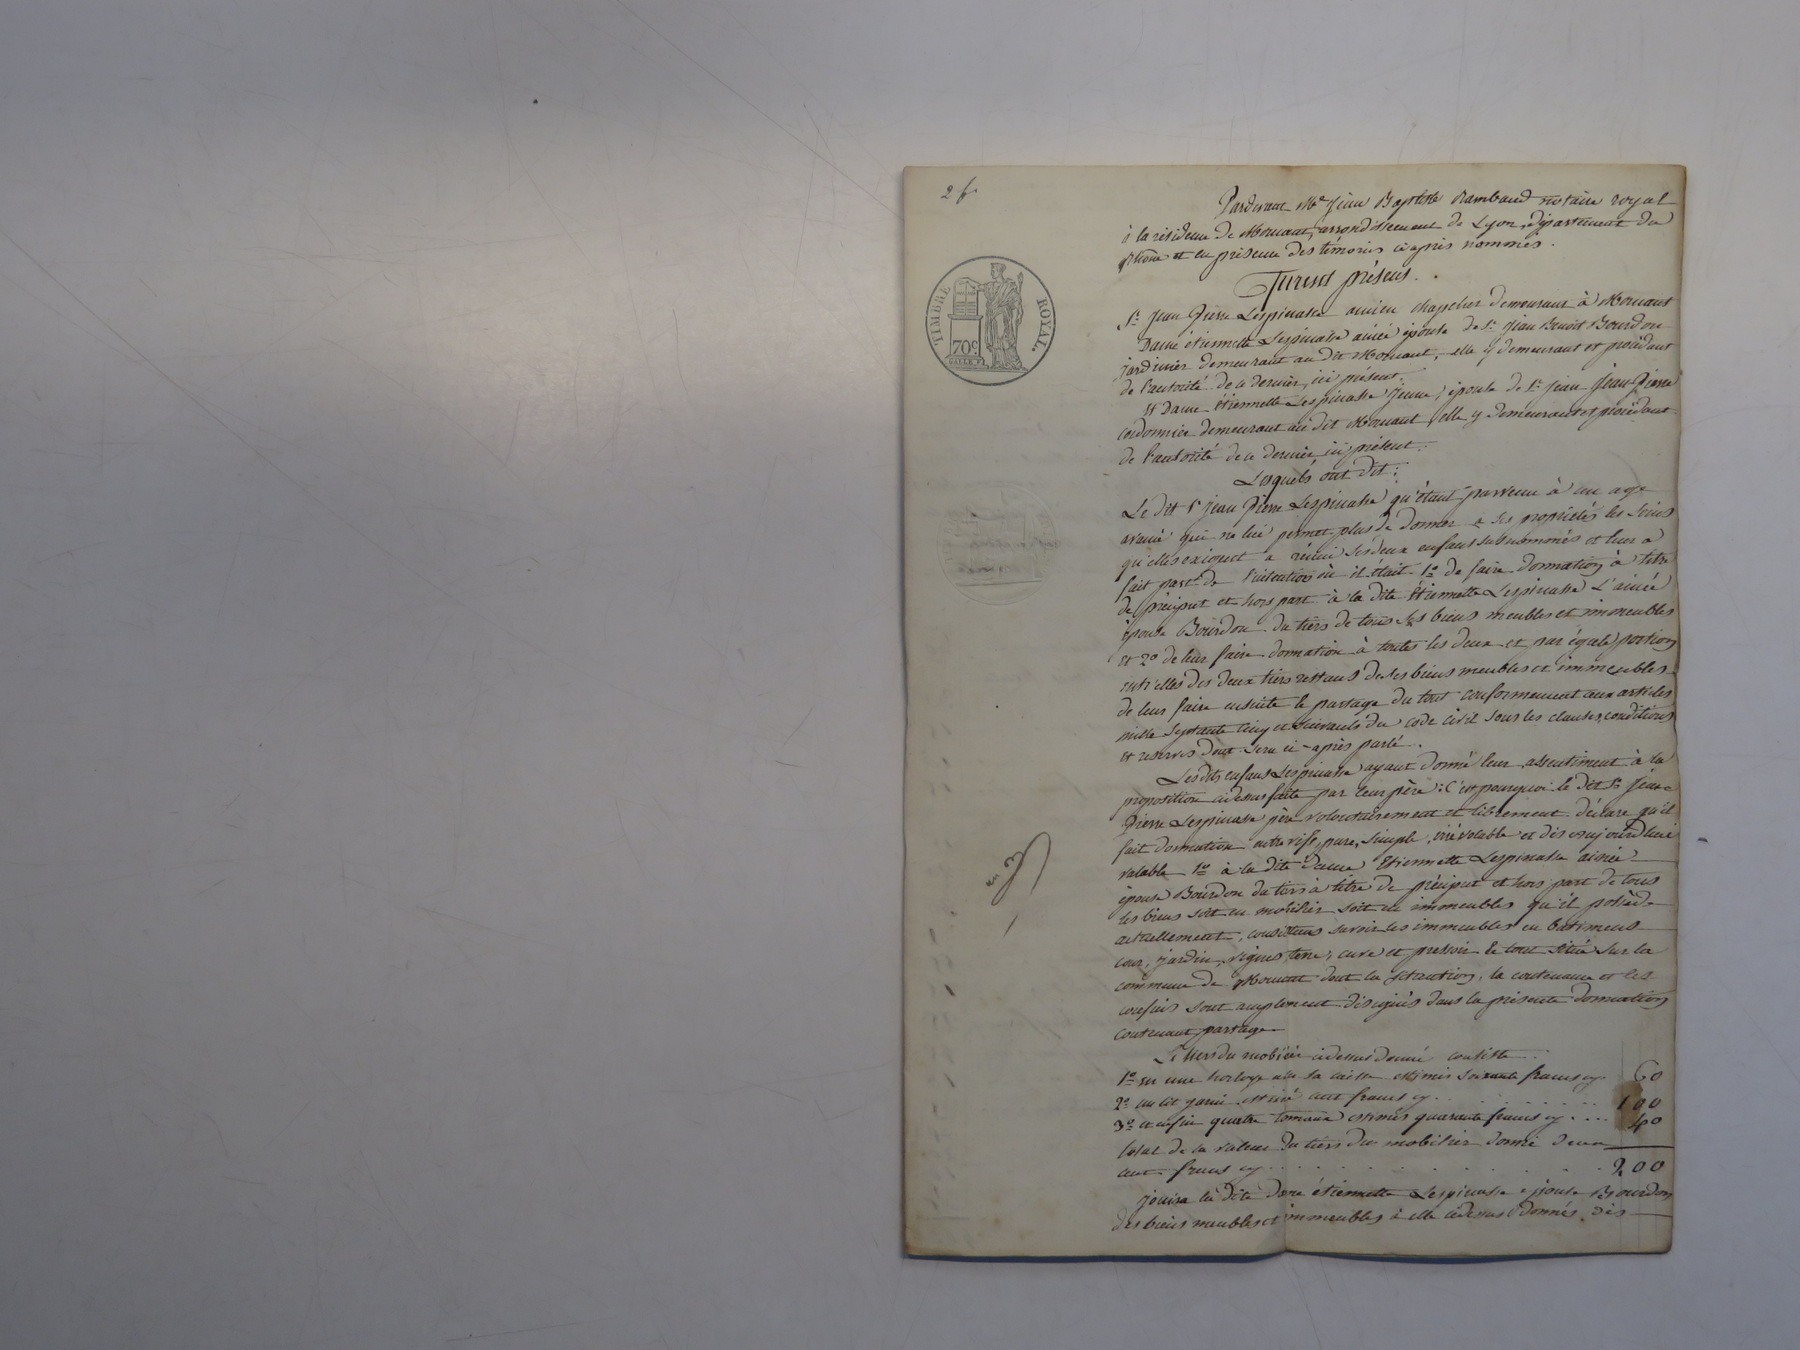 2 f
TIMBRE ROYAL.
70c
Pardevant Me Jean Baptiste Rambaud notaire royal
à la résidence de Mornant, arrondissement de Lyon, département du
Rhône et en présence des témoins ci après nommés.
furent présens.
Sr Jean Pierre Lespinasse ancien chapelier demeurant à Mornant
Dame étiennette Lespinasse ainée épouse de Sr Jean Benoit Bourdon
jardinier demeurant au dit Mornant, elle y demeurant et procédant
de l'autorité de ce dernier, ici présent.
Et Dame Etiennette Lespinasse Jeune, épouse de Sr jean Jean Pierre
cordonnier demeurant au dit Mornant, elle y demeurant et procédant
de l'autorité de ce dernier, ici présent.
Lesquels ont dit:
Le dit Sr Jean Pierre Lespinasse qu'étant parvenu à un age
avancé qui ne lui permet plus de donner à ses propriétés les soins
qu'elles exigent a réuni ses deux enfans susnommés et leur a
fait part de l'intention où il était 1o de faire donnation à titre
de préciput et hors part à la dite Etiennette Lespinasse L'ainée
épouse Bourdon du tiers de tous ses biens meubles et immeubles
et 2o de leur faire donnation à toutes les deux et par égale portion
entr'elles des deux tiers restans de ses biens meubles et immeubles
de leur faire ensuite le partage du tout conformement aux articles
mille septante cinq et suivants du code civil sous les clauses, conditions
et reserves dont sera ci-après parlé.
Lesdits enfans Lespinasse ayant donné leur assentiment à la
proposition cidessus faite par leur père: C'est pourquoi le dit Sr Jean
Pierre Lespinasse père volontairement et librement déclare qu'il
fait donnation entre vifs, pure, simple, irrévocable et dès aujourd'hui
valable 1o à la dite Dame Etiennette Lespinasse ainée
épouse Bourdon du tiers à titre de préciput et hors part de tous
les biens soit en mobilier soit en immeubles qu'il possède
actuellement, consistans savoir les immeubles en batimens
cour, jardin, vignes, terre, cuve et pressoir le tout situé sur la
commune de Mornant dont la situation, la contenance et les
confins sont amplement désignés dans la présente donnation
contenant partage
Le tiers du mobilier cidessus donné consiste.
1o en une horloge avec sa caisse estimée soixante francs cy 60
2o un lit garni estimé cent francs cy 100
3o et enfin quatre tonneaux estimés quarante francs cy 40
total de la valeur du tiers du mobilier donné deux
cent francs cy 200
jouira la dite Dame étiennette Lespinasse épouse Bourdon
des biens meubles et immeubles à elle cidessus donnés dès